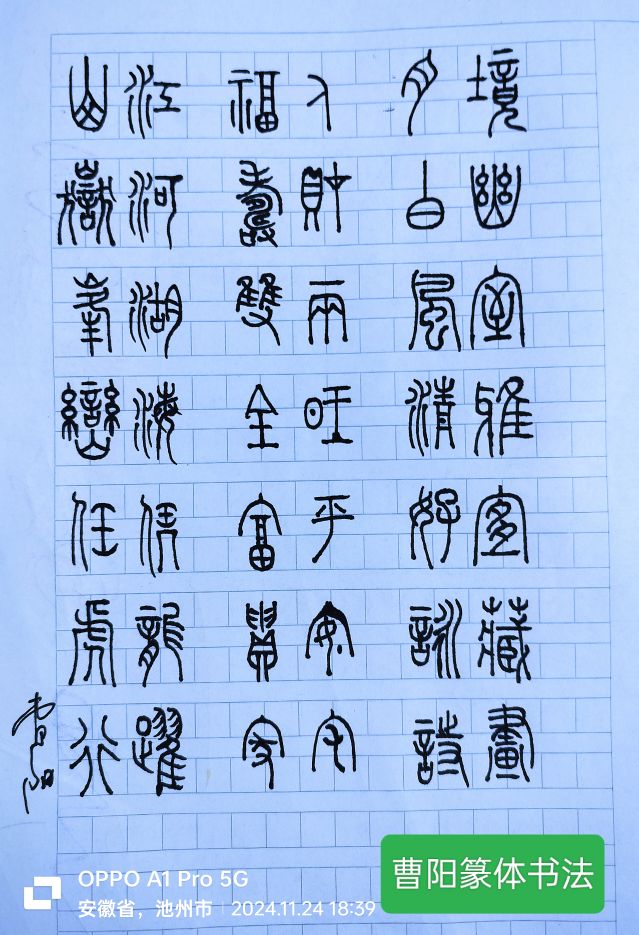 境幽室雅宜藏畫
月白風清好詠詩
人財兩旺平安宅
福壽雙全富貴家
江河湖海倩龍躍
山嶽峯巒任虎行
曹阳
曹阳篆体书法
OPPO A1 Pro 5G
安徽省，池州市 | 2024.11.24 18:39